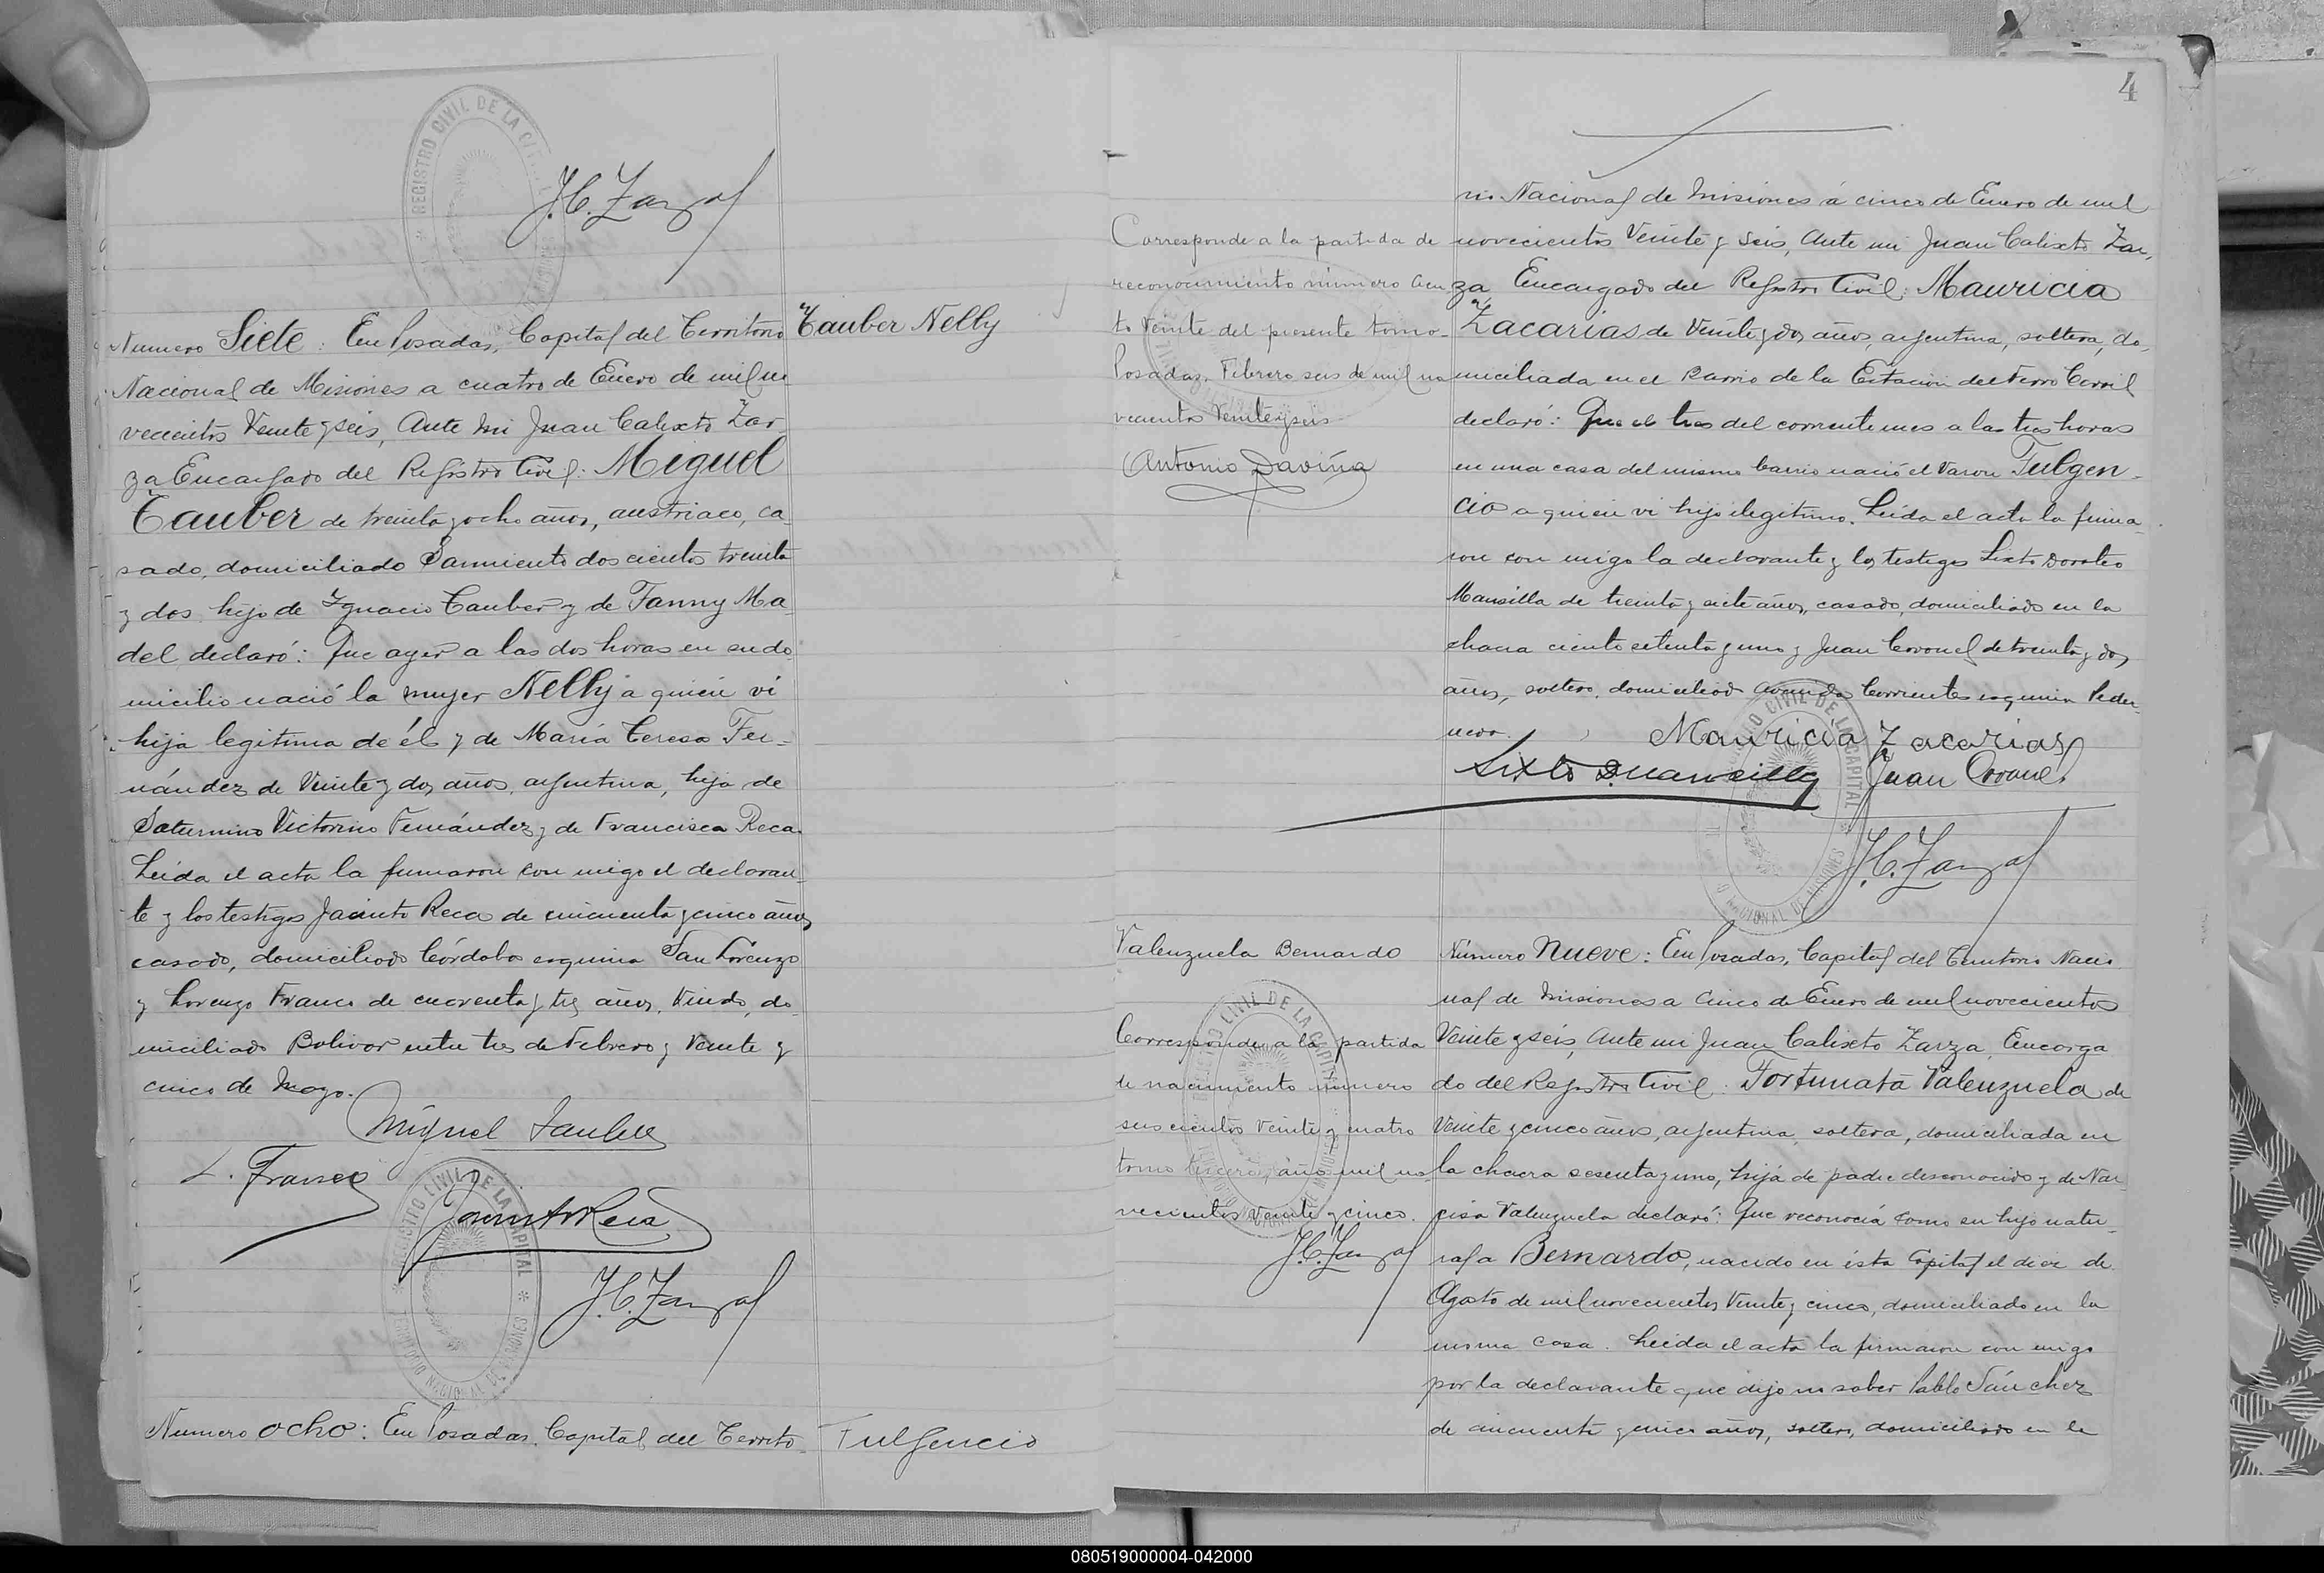 REGISTRO CIVIL DE LA CAPITAL
J.C. Zarza
Tauber Nelly
Numero Siete: En Posadas, Capital del Territorio
Nacional de Misiones a cuatro de Enero de mil no
vecientos Veinte y seis, Ante mi Juan Calixto Zar
za Encargado del Registro Civil: Miguel
Tauber de treinta y ocho años, austriaco, ca
sado, domiciliado Sarmiento doscientos treinta
y dos, hijo de Ygnacio Tauber y de Fanny Ma
del declaró: Que ayer a las dos horas en su do
micilio nació la mujer Nelly a quien vi
hija legitima de él y de María Teresa Fer-
nández de Veinte y dos años, argentina, hija de
Saturnino Victorino Fernández y de Francisca Reca.
Leida el acta la firmaron con migo el declaran-
te y los testigos Jacinto Reca de cincuenta y cinco años
casado, domiciliado Córdoba esquina San Lorenzo
y Lorenzo Franco de cuarenta y tres años, Viudo, do-
miciliado Bolivar entre tres de Febrero y Veinte y
cinco de Mayo.
Miguel Tauber
L. Franco
Jacinto Reca
REGISTRO CIVIL DE LA CAPITAL * TERRITORIO NACIONAL DE MISIONES *
J.C. Zarza
Numero ocho: En Posadas, Capital del Territo-
Fulgencio
4
rio Nacional de Misiones á cinco de Enero de mil
novecientos Veinte y seis, Ante mi Juan Calixto Zar,
za Encargado del Registro Civil: Mauricia
Zacarias de Veinte y dos años, argentina, soltera, do,
miciliada en el Barrio de la Estación del Ferro Carril
declaró: Que el tres del corriente mes a las tres horas
en una casa del mismo barrio nació el Varon Fulgen-
cio a quien vi hijo ilegitimo. Leida el acta la firma
ron con migo la declarante y los testigos Sixto Doroteo
Mansilla de treinta y siete años, casado, domiciliado en la
chacra ciento setenta y uno y Juan Coronel de treinta y dos
años, soltero, domiciliado Avenida Corrientes esquina Peder-
nera.
Corresponde a la partida de
reconocimiento número cien
to Veinte del presente tomo-
Posadas, Febrero seis de mil no
vecientos Veinteyseis-
Antonio Daviña
Mauricia Zacarias
Sixto D. Mansilla Juan Coronel
J.C. Zarza
Valenzuela Bernardo
Número Nueve: En Posadas, Capital del Territorio Nacio
nal de Misiones a Cinco de Enero de mil novecientos
Veinte y seis, Ante mi Juan Calixto Zarza, Encarga
do del Registro Civil: Fortunata Valenzuela de
Veinte y cinco años, argentina, soltera, domiciliada en
la chacra sesenta y uno, hija de padre desconocido y de Nar-
cisa Valenzuela declaró: Que reconocía como su hijo natu-
ral a Bernardo, nacido en ésta Capital el diez de
Agosto de mil novecientos Veinte y cinco, domiciliado en la
misma casa. Leida el acta la firmaron con migo
por la declarante que dijo no saber Pablo Sánchez
de cincuenta y cinco años, soltero, domiciliado en la
Corresponde a la partida
de nacimiento número
seiscientos Veinte y cuatro
tomo tercero, año mil no
vecientos veinte y cinco.
J.C. Zarza
080519000004-042000